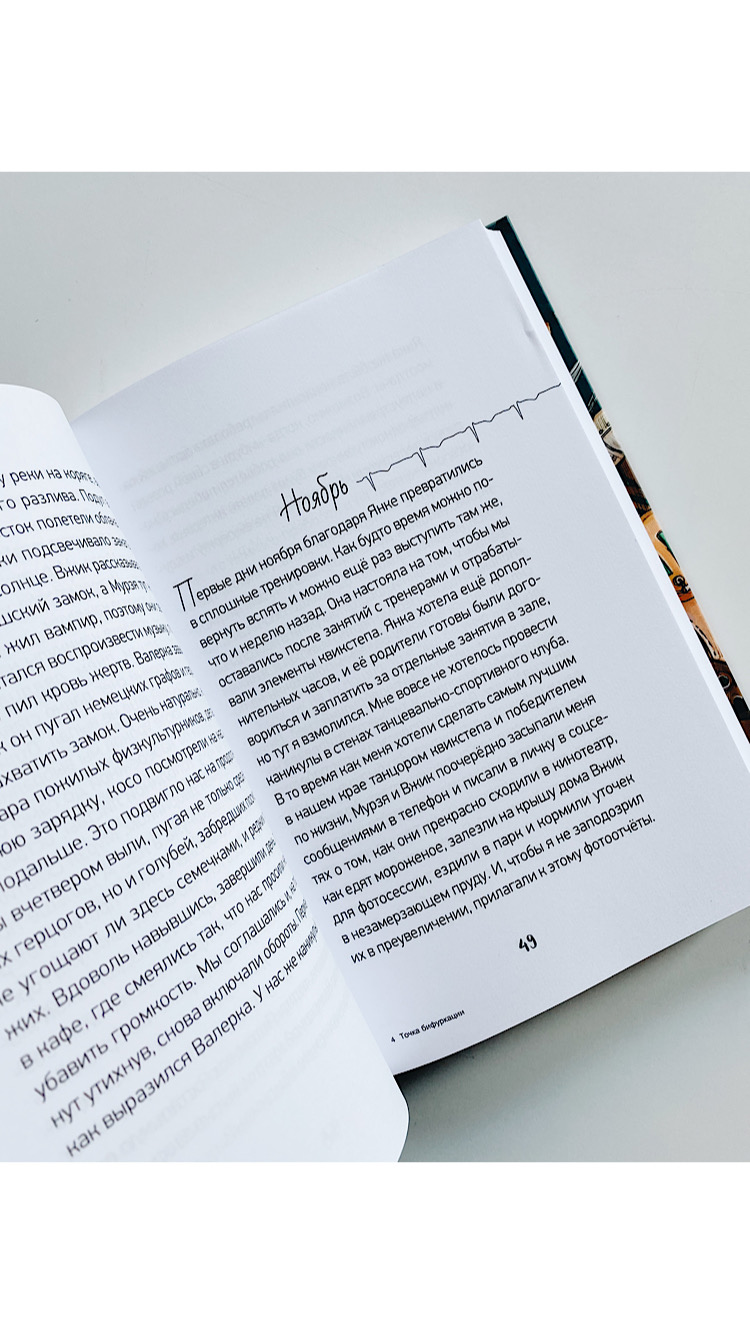 у реки на коряге
го разлива.
сток полетели
ки подсвечивало
солнце. Вжик рассказывае
шский замок, а Мурзя
жил вампир, поэтому он
тался воспроизвести музыку
пил кровь жертв. Валерка
к он пугал немецких графов и
хватить замок. Очень натурально
ара пожилых физкультурников,
юю зарядку, косо посмотрели на
подальше. Это подвигло нас на
ы вчетвером выли, пугая не только
х герцогов, но и голубей, забредших
не угощают ли здесь семечками, и
жих. Вдоволь навывшись, завершили
в кафе, где смеялись так, что нас просили
убавить громкость. Мы соглашались и,
нут утихнув, снова включали обороты.
как выразился Валерка. У нас же каникулы
Ноябрь
Первые дни ноября благодаря Янке превратились
в сплошные тренировки. Как будто время можно по-
вернуть вспять и можно ещё раз выступить там же,
что и неделю назад. Она настояла на том, чтобы мы
оставались после занятий с тренерами и отрабаты-
вали элементы квикстепа. Янка хотела ещё допол-
нительных часов, и её родители готовы были дого-
вориться и заплатить за отдельные занятия в зале,
но тут я взмолился. Мне вовсе не хотелось провести
каникулы в стенах танцевально-спортивного клуба.
В то время как меня хотели сделать самым лучшим
в нашем крае танцором квикстепа и победителем
по жизни, Мурзя и Вжик поочерёдно засыпали меня
сообщениями в телефон и писали в личку в соцсе-
тях о том, как они прекрасно сходили в кинотеатр,
как едят мороженое, залезли на крышу дома Вжик
для фотосессии, ездили в парк и кормили уточек
в незамерзающем пруду. И, чтобы я не заподозрил
их в преувеличении, прилагали к этому фотоотчёты.
49
4 Точка бифуркации